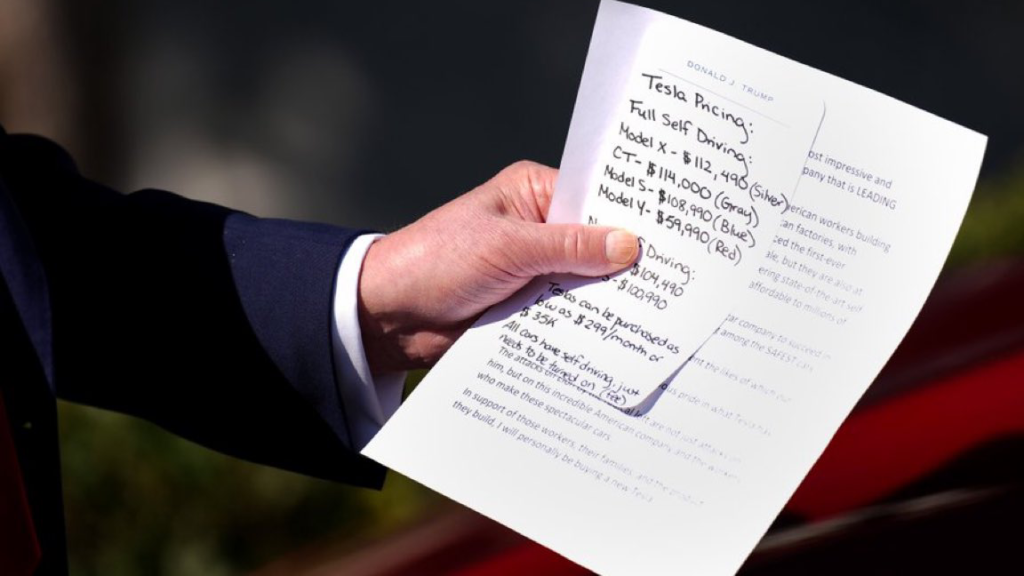 DONALD J. TRUMP
Tesla Pricing:
Full Self Driving:
Model X - $112,490 (Silver)
CT - $114,000 (Gray)
Model S - $108,990 (Blue)
Model Y - $59,990 (Red)
Driving:
$104,490
- $100,990
Teslas can be purchased as
low as $299/month or
$35K
All cars have self driving, just
needs to be turned on (fee)
ost impressive and
pany that is LEADING
erican workers building
an factories, with
ced the first-ever
ale, but they are also at
ering state-of-the-art self
affordable to millions of
ar company to succeed in
among the SAFEST cars
ent the likes of which our
s pride in what Tesla has
The attacks on are not just attacks on
him, but on this incredible American company and the workers
who make these spectacular cars.
In support of those workers, their families, and the product
they build, I will personally be buying a new Tesla